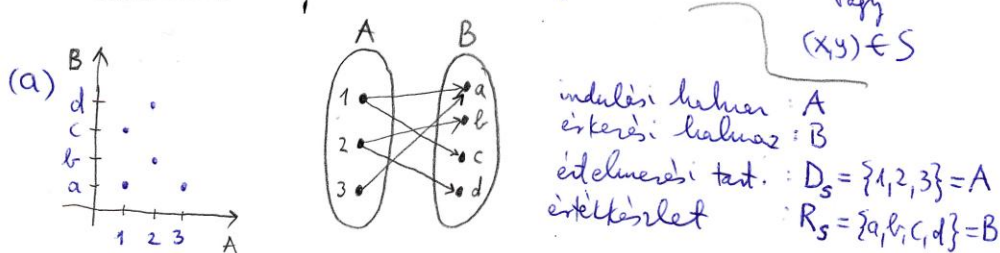 vagy
(x,y) ∈ S
(a)
B
d
c
b
a
1 2 3
A
A
B
1
2
3
a
b
c
d
indulási halmaz : A
érkezési halmaz : B
értelmezési tart. : D_s = {1,2,3} = A
értékkészlet : R_s = {a,b,c,d} = B